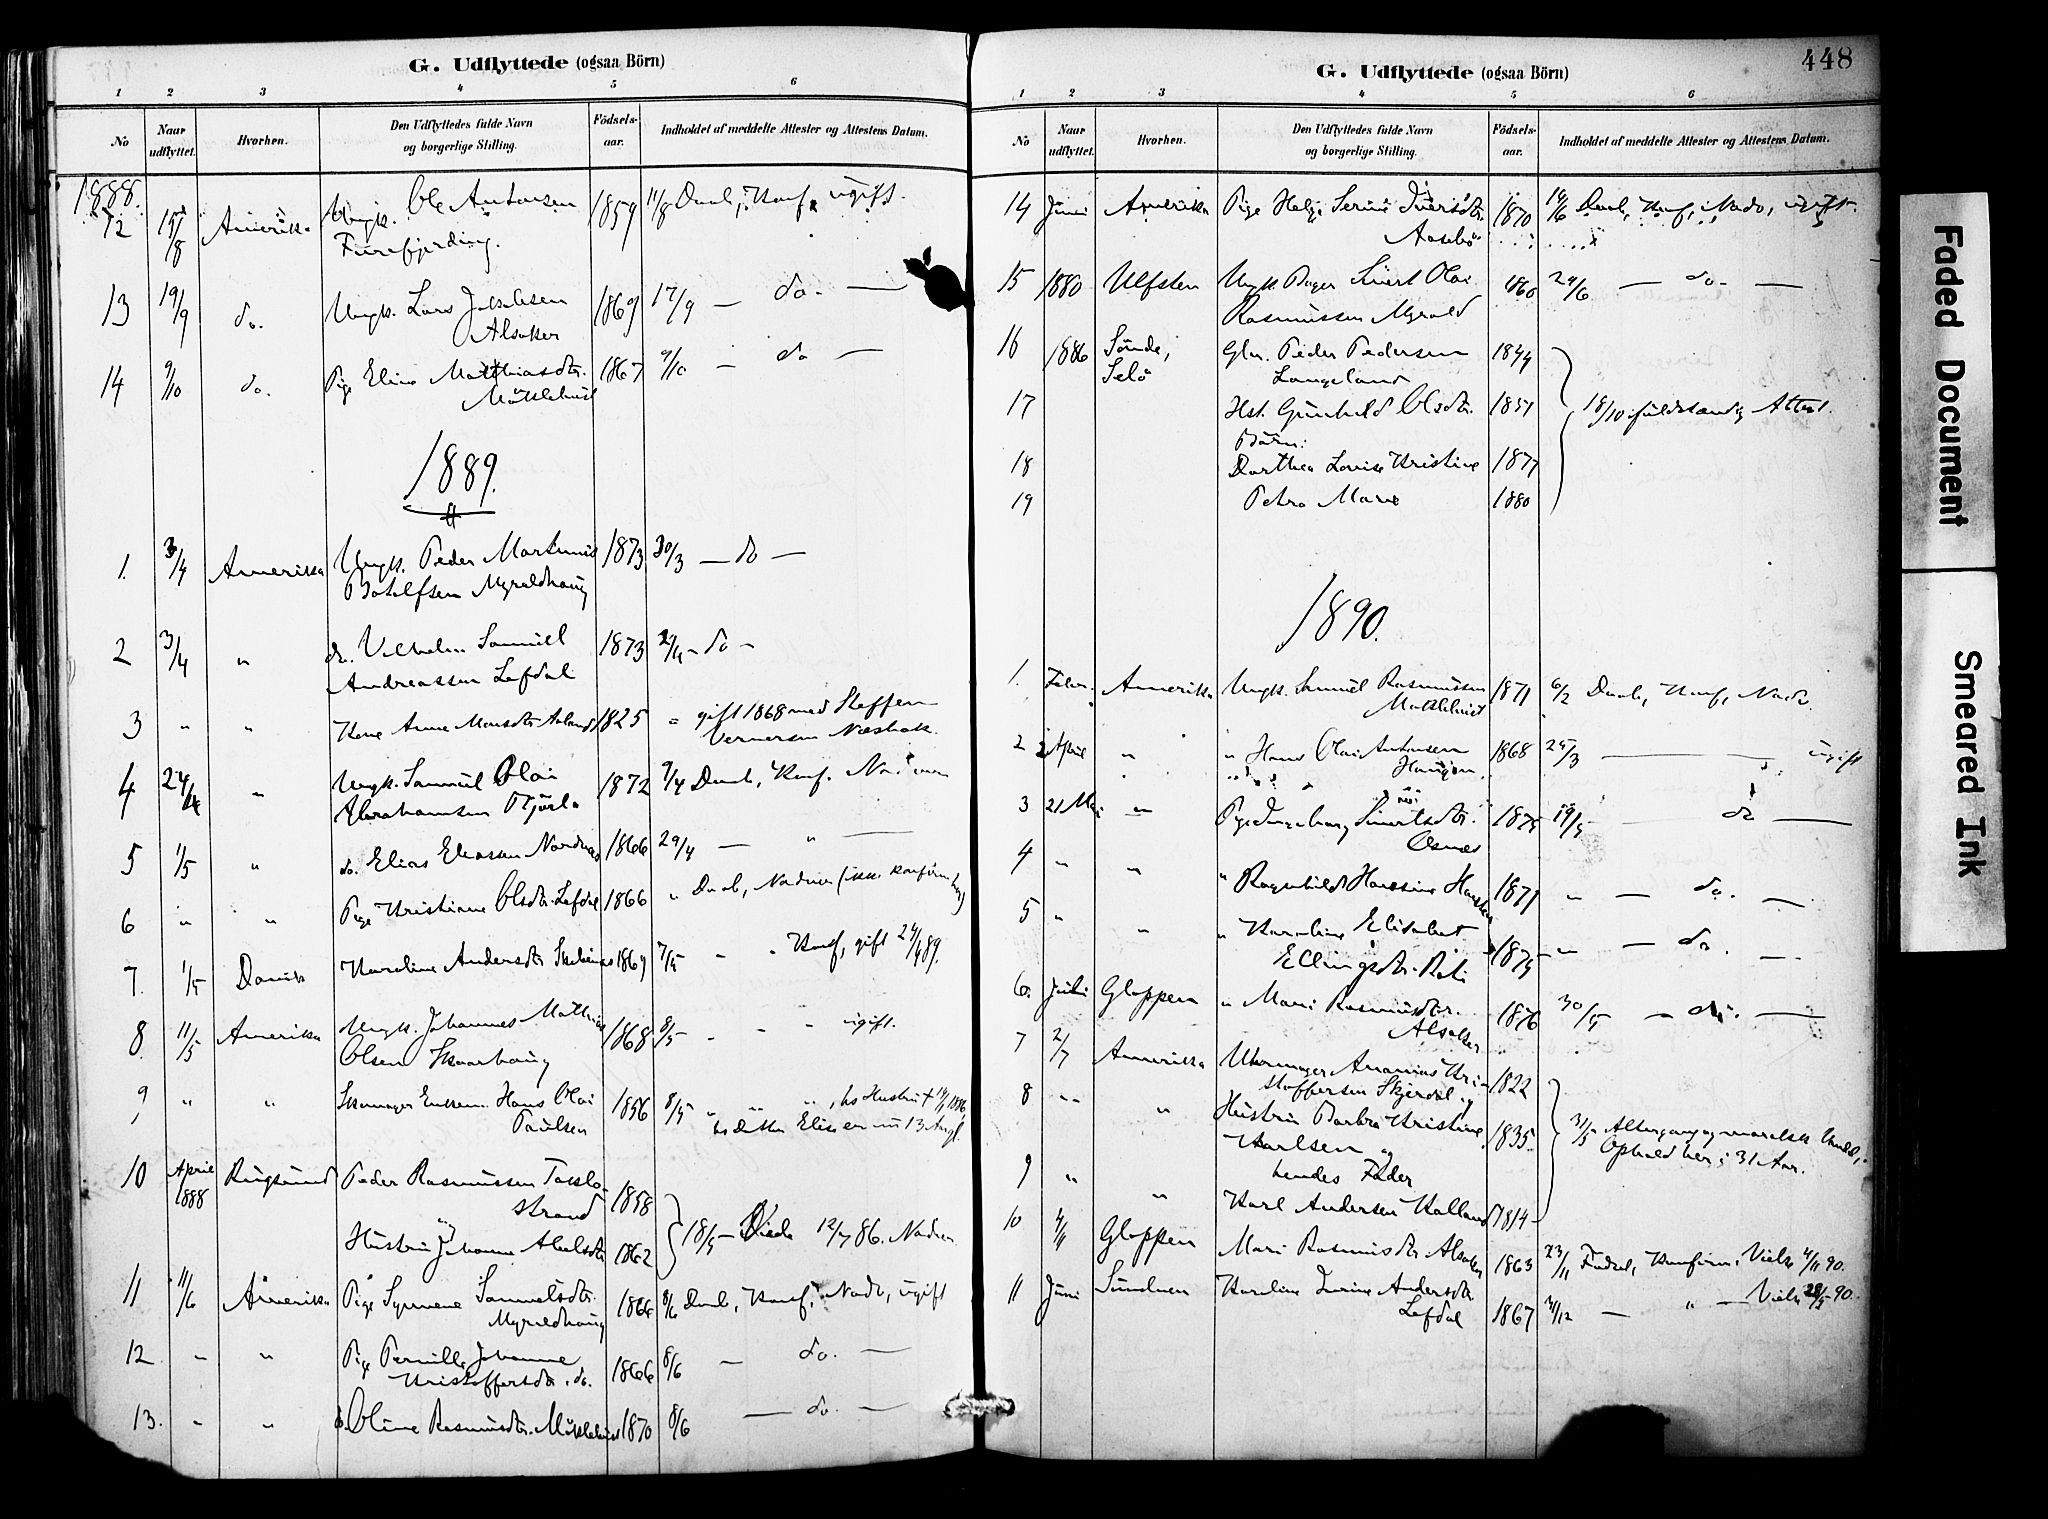 G. Udflyttede (ogsaa Börn)
1 2 3 4 5 6
No
Naar udflyttet.
Hvorhen.
Den Udflyttedes fulde Navn og borgerlige Stilling.
Födsels-aar.
Indholdet af meddelte Attester og Attestens Datum.
1888.
12 15/8 Amerika Ungk. Ole Antonsen 1859 11/8 Daab, Konf, ugift.
Furefjerding.
13 19/9 do. Ungk. Lars Jakobsen 1869 17/9 — do. —
Alsaker
14 9/10 do. Pige Eline Matthiasdtr. 1867 9/10 — do —
Möklebust
1889.
1. 3/4 Amerika Ungk. Peder Martinus 1873 30/3 — do —
Botolfsen Myroldhaug
2 3/4 " do. Vilhelm Samuel 1873 2/4 - do -
Andreassen Lefdal
3 " " Kone Anne Monsdtr. 1825 = gift 1868 med Steffen
Vernersen Næsbak.
4 24/4 " Ungk. Samuel Olai 1872 9/4 Daab, Konf. Nadvere
Abrahamsen
5 1/5 " do. Elias Eliassen Nordnes 1866 29/4 — " —
6 " " Pige Kristiane Olsdtr. Lefdal 1866 " Daab, Nadver (ikke konfirm
7. 1/5 Davik Karoline Andersdtr. 1869 7/5 " " Konf, gift 24/4 89.
8 11/5 Amerika Ungk. Johannes Mathias 1868 8/5 - " " ugift.
Olsen Skaarhaug
9 " " Skomager Enkem. Hans Olai 1856 8/5 " " ", hs Hustru † 1886,
Paulsen hs Datter Elise
10 April 1888 Rugsund Peder Rasmussen 1858
strand
Hustru Johanne 1862 18/5 — Viede 12/7 86. Nadver
11 11/6 Amerika Pige Synneve Samuelsdtr. 1866 8/6 Daab, Konf, Nadv, ugift
Myroldhaug
12 " " Pige Pernille Johanne 1866 8/6 — do. —
Kristoffersdtr. do.
13. " " Oline Rasmusdtr. Möklebust 1870 8/6 — do. —
G. Udflyttede (ogsaa Börn)
448
1 2 3 4 5 6
No
Naar udflyttet.
Hvorhen.
Den Udflyttedes fulde Navn og borgerlige Stilling.
Födsels-aar.
Indholdet af meddelte Attester og Attestens Datum.
14 Juni Amerika Pige Helge Serine Iversdtr. 1870 14/6 Daab, Konf, Nadv, ugift.
Aasebö
15 1880 Ulfsten Ungk. Sivert Olai 1860 24/6 — do. —
Rasmussen Myrold
16 1886 Sönde, Gbr. Peder Pedersen 1844
Selö Langeland
17 Hst. Gunhild Olsdtr. 1851 18/10 fuldstændig Attest.
Börn:
18 Dorthea Lovise Kristine 1877
19 Petra Marie 1880
1890.
1. Febr. Amerika Ungk. Samuel Rasmussen 1871 6/2 Daab, Konf, Nadv.
Möklebust
2 2 April " " Hans Olai Antonsen 1868 25/3 — ugift
Haugen.
3 21 Mai " Pige Ingeborg Sivertsdtr. 1875 19/5 — do —
Osnes
4 " " " Ragnhild Hansine 1871 " — do. —
5 " " " Karoline Elisabet 1875 " — do. —
Ellingsdtr.
6. Juli Gloppen " Mari Rasmusdtr. 1876 30/5 — do. —
Alsaker
7 2/7 Amerika Ananias Kri- 1822
stoffersen Skjerdal og
8 " " Hustru Barbra Kristine 1835 31/5 Altergang og moralsk Vandel,
Karlsen og Ophold her i 31 Aar.
9 " " hendes Fader
Karl Andersen 1814
10 4/11 Gloppen Mari Rasmusdtr. Alsaker 1863 23/11 Födsel, Konfirm, Viels. 4/11 90.
11 Juni Karoline Andersdtr. 1867 31/12 — " — Viels 28/5 90.
Lefdal
Faded Document
Smeared Ink